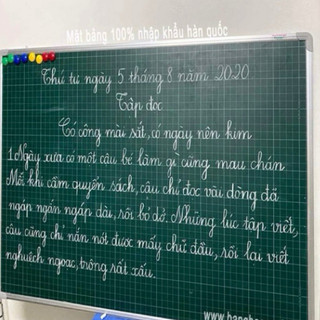 Mặt bảng 100% nhập khẩu hàn quốc
Thứ tư ngày 5 tháng 8 năm 2020
Tập đọc
Có công mài sắt, có ngày nên kim
1.Ngày xưa có một cậu bé làm gì cũng mau chán.
Mỗi khi cầm quyển sách, cậu chỉ đọc vài dòng đã
ngáp ngắn ngáp dài, rồi bỏ dở. Những lúc tập viết,
cậu cũng chỉ nắn nót được mấy chữ đầu, rồi lại viết
nghuệch ngoạc, trông rất xấu.